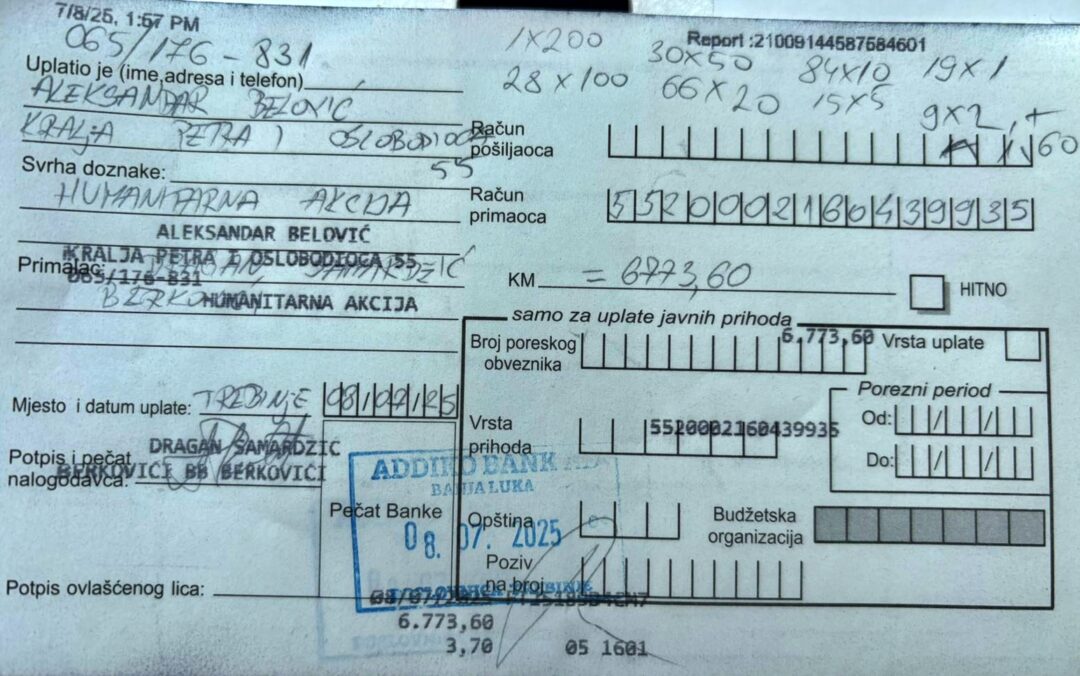 7/8/25, 1:57 PM
Report :21009144587584601
065/176-831
1X200 30X50 84X10 19X1
28X100 66X20 15X5 9X2,+
60
Uplatio je (ime,adresa i telefon)
ALEKSANDAR BELOVIĆ
KRALJA PETRA I OSLOBODIOCA
55
Račun pošiljaoca
Svrha doznake:
HUMANITARNA AKCIJA
Račun primaoca
5520002160439935
ALEKSANDAR BELOVIĆ
KRALJA PETRA I OSLOBODIOCA 55
065/176-831
Primalac: DRAGAN SAMARDŽIĆ
HUMANITARNA AKCIJA
KM = 6773,60
HITNO
samo za uplate javnih prihoda
Broj poreskog obveznika
6.773,60
Vrsta uplate
Porezni period
Od: / /
Do: / /
Mjesto i datum uplate: TREBINJE 08/07/25
Vrsta prihoda
5520002160439935
DRAGAN SAMARDŽIĆ
BERKOVIĆI BB BERKOVIĆI
Potpis i pečat nalogodavca:
ADDIKO BANK
BANJA LUKA
08. 07. 2025
Pečat Banke
Opština
Budžetska organizacija
Poziv na broj
Potpis ovlašćenog lica:
6.773,60
3,70 05 1601